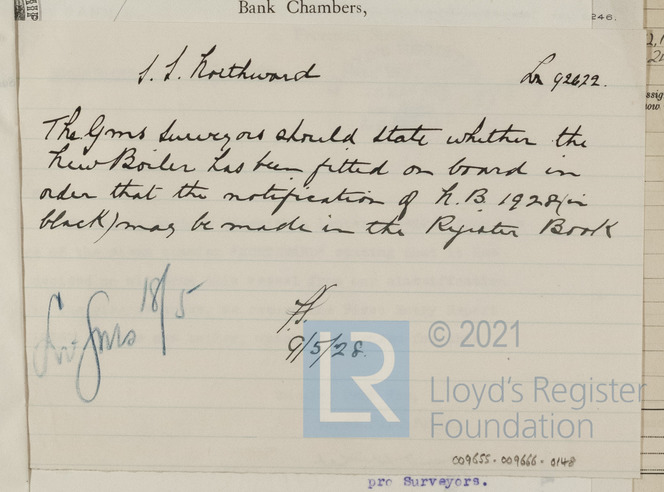 Bank Chambers,
246.
S. S. Northward
Ln 92622.
The Gms Surveyors should state whether the
New Boiler has been fitted on board in
order that the notification of N.B. 1928 (in
black) may be made in the Register Book
18/5
Gms
9/5/28.
LR
© 2021
Lloyd's Register
Foundation
009655-009666-0148
pro Surveyors.